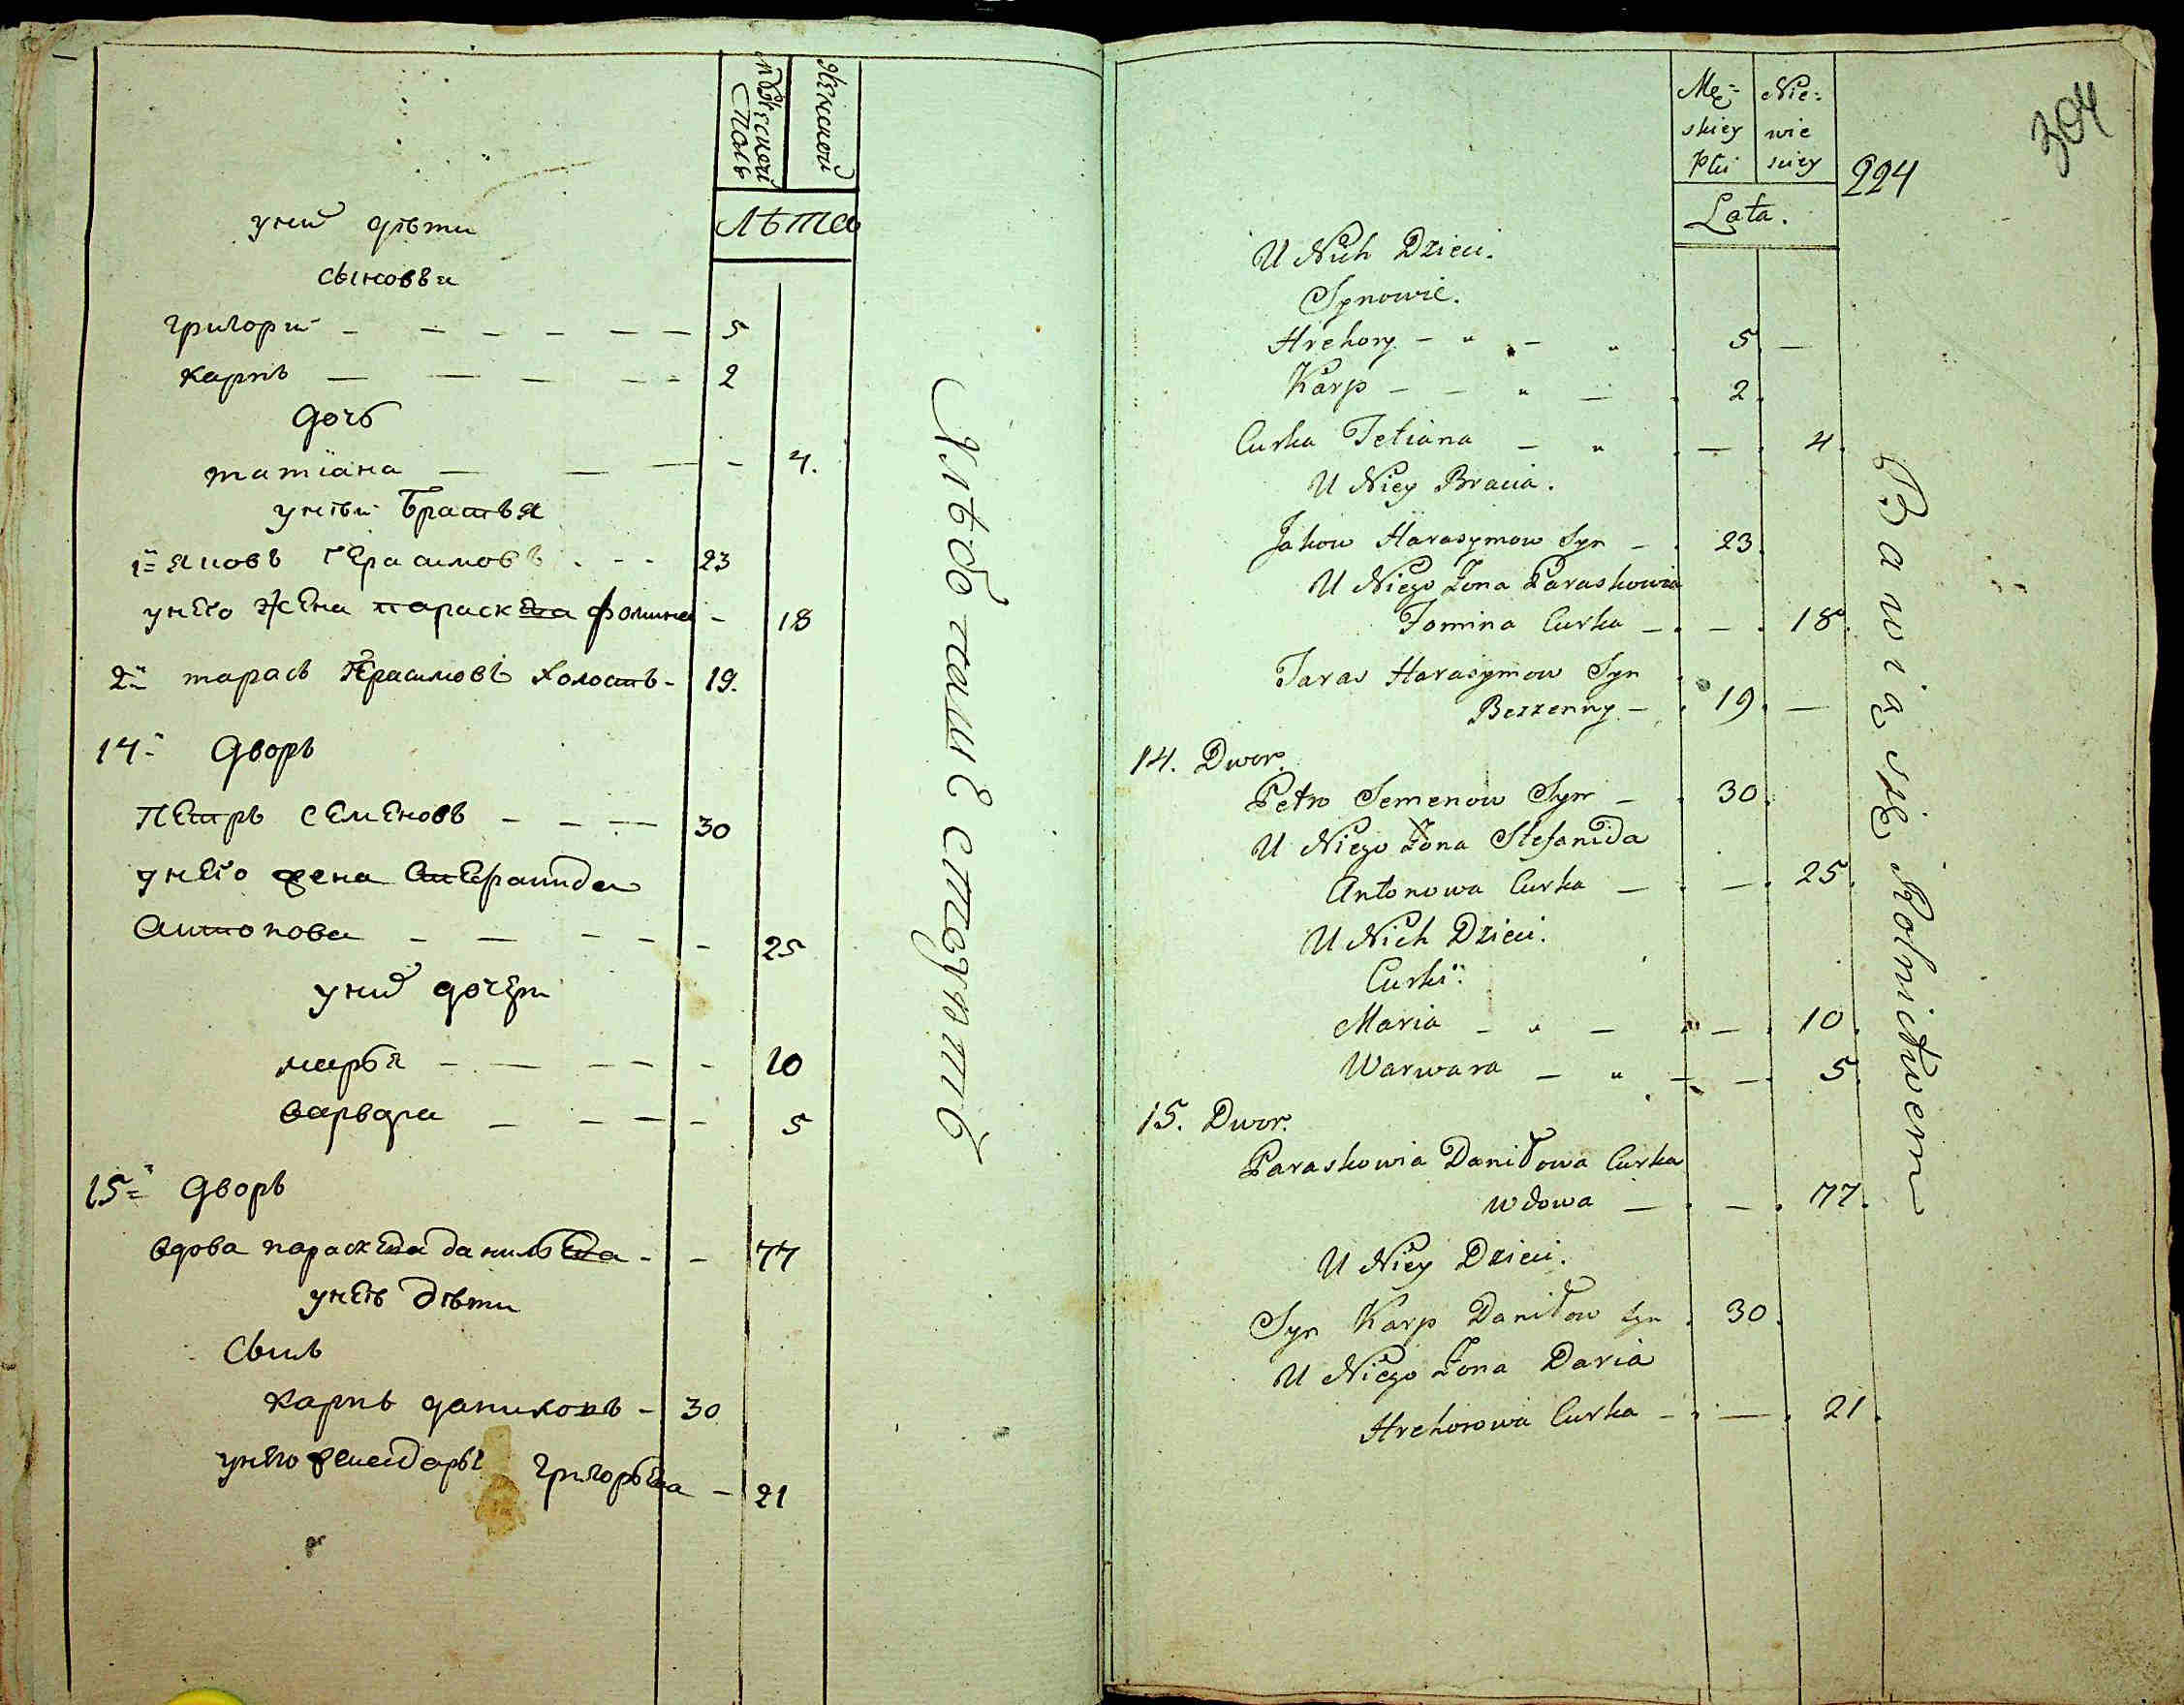 мужеской
полъ
женской
лѣта
у них дѣти
сыновья
григорий - - - - - - 5
карпъ - - - - - 2
дочь
татіана - - - - 4.
у нѣй братья
1й яковъ герасимовъ - - - 23
у него жена параскева фомина - 18
2й тарасъ герасимовъ холостъ - 19.
14й дворъ
петръ семеновъ - - - 30
у него жена
антонова - - - - - 25
у них дочери
марья - - - - - 10
варвара - - - - - 5
15й дворъ
вдова параскева данильева - - 77
у неѣ дѣти
сынъ
карпъ даниловъ - 30
у него жена дарья григорьева - 21
Хлѣбопашествуютъ
Mę= Nie=
skiey wie
płci skiey
Lata.
224
304
U Nich Dzieci.
Synowie.
Hrehory - " - " 5 -
Karp - - " - 2.
Curka Tetiana - " - 4.
U Niey Bracia.
Jakow Harasymow Syn - 23.
U Niego Zona Paraskowia
Fomina Curka - - 18.
Taras Harasymow Syn
Bezzenny - 19. -
14. Dwor.
Petro Semenow Syn - 30.
U Niego Zona Stefanida
Antonowa Curka - - 25.
U Nich Dzieci.
Curki.
Maria - " - " - 10.
Warwara - " - - 5.
15. Dwor.
Paraskowia Daniłowa Curka
wdowa - - 77.
U Niey Dzieci.
Syn Karp Daniłow Syn 30.
U Niego Zona Daria
Hrehorowa Curka - - 21.
Bawią się Rolnictwem